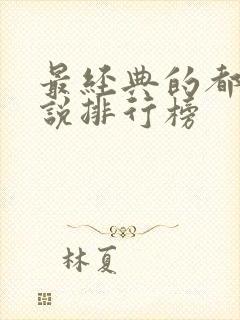 最經典的都
說排行榜
林夏